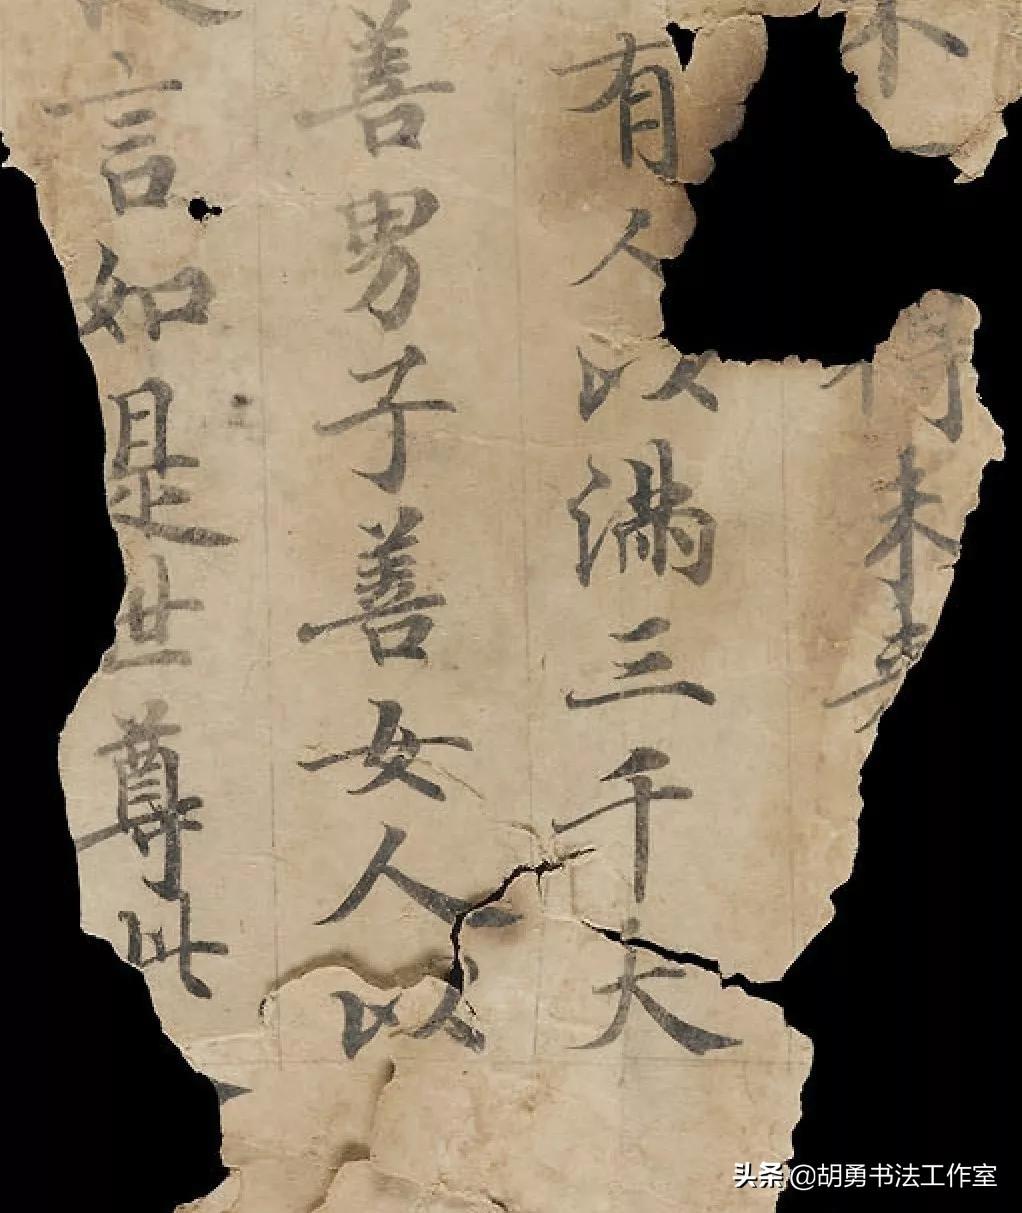 得未
有人以滿三千大
善男子善女人以
言如是世尊此
头条 @胡勇书法工作室